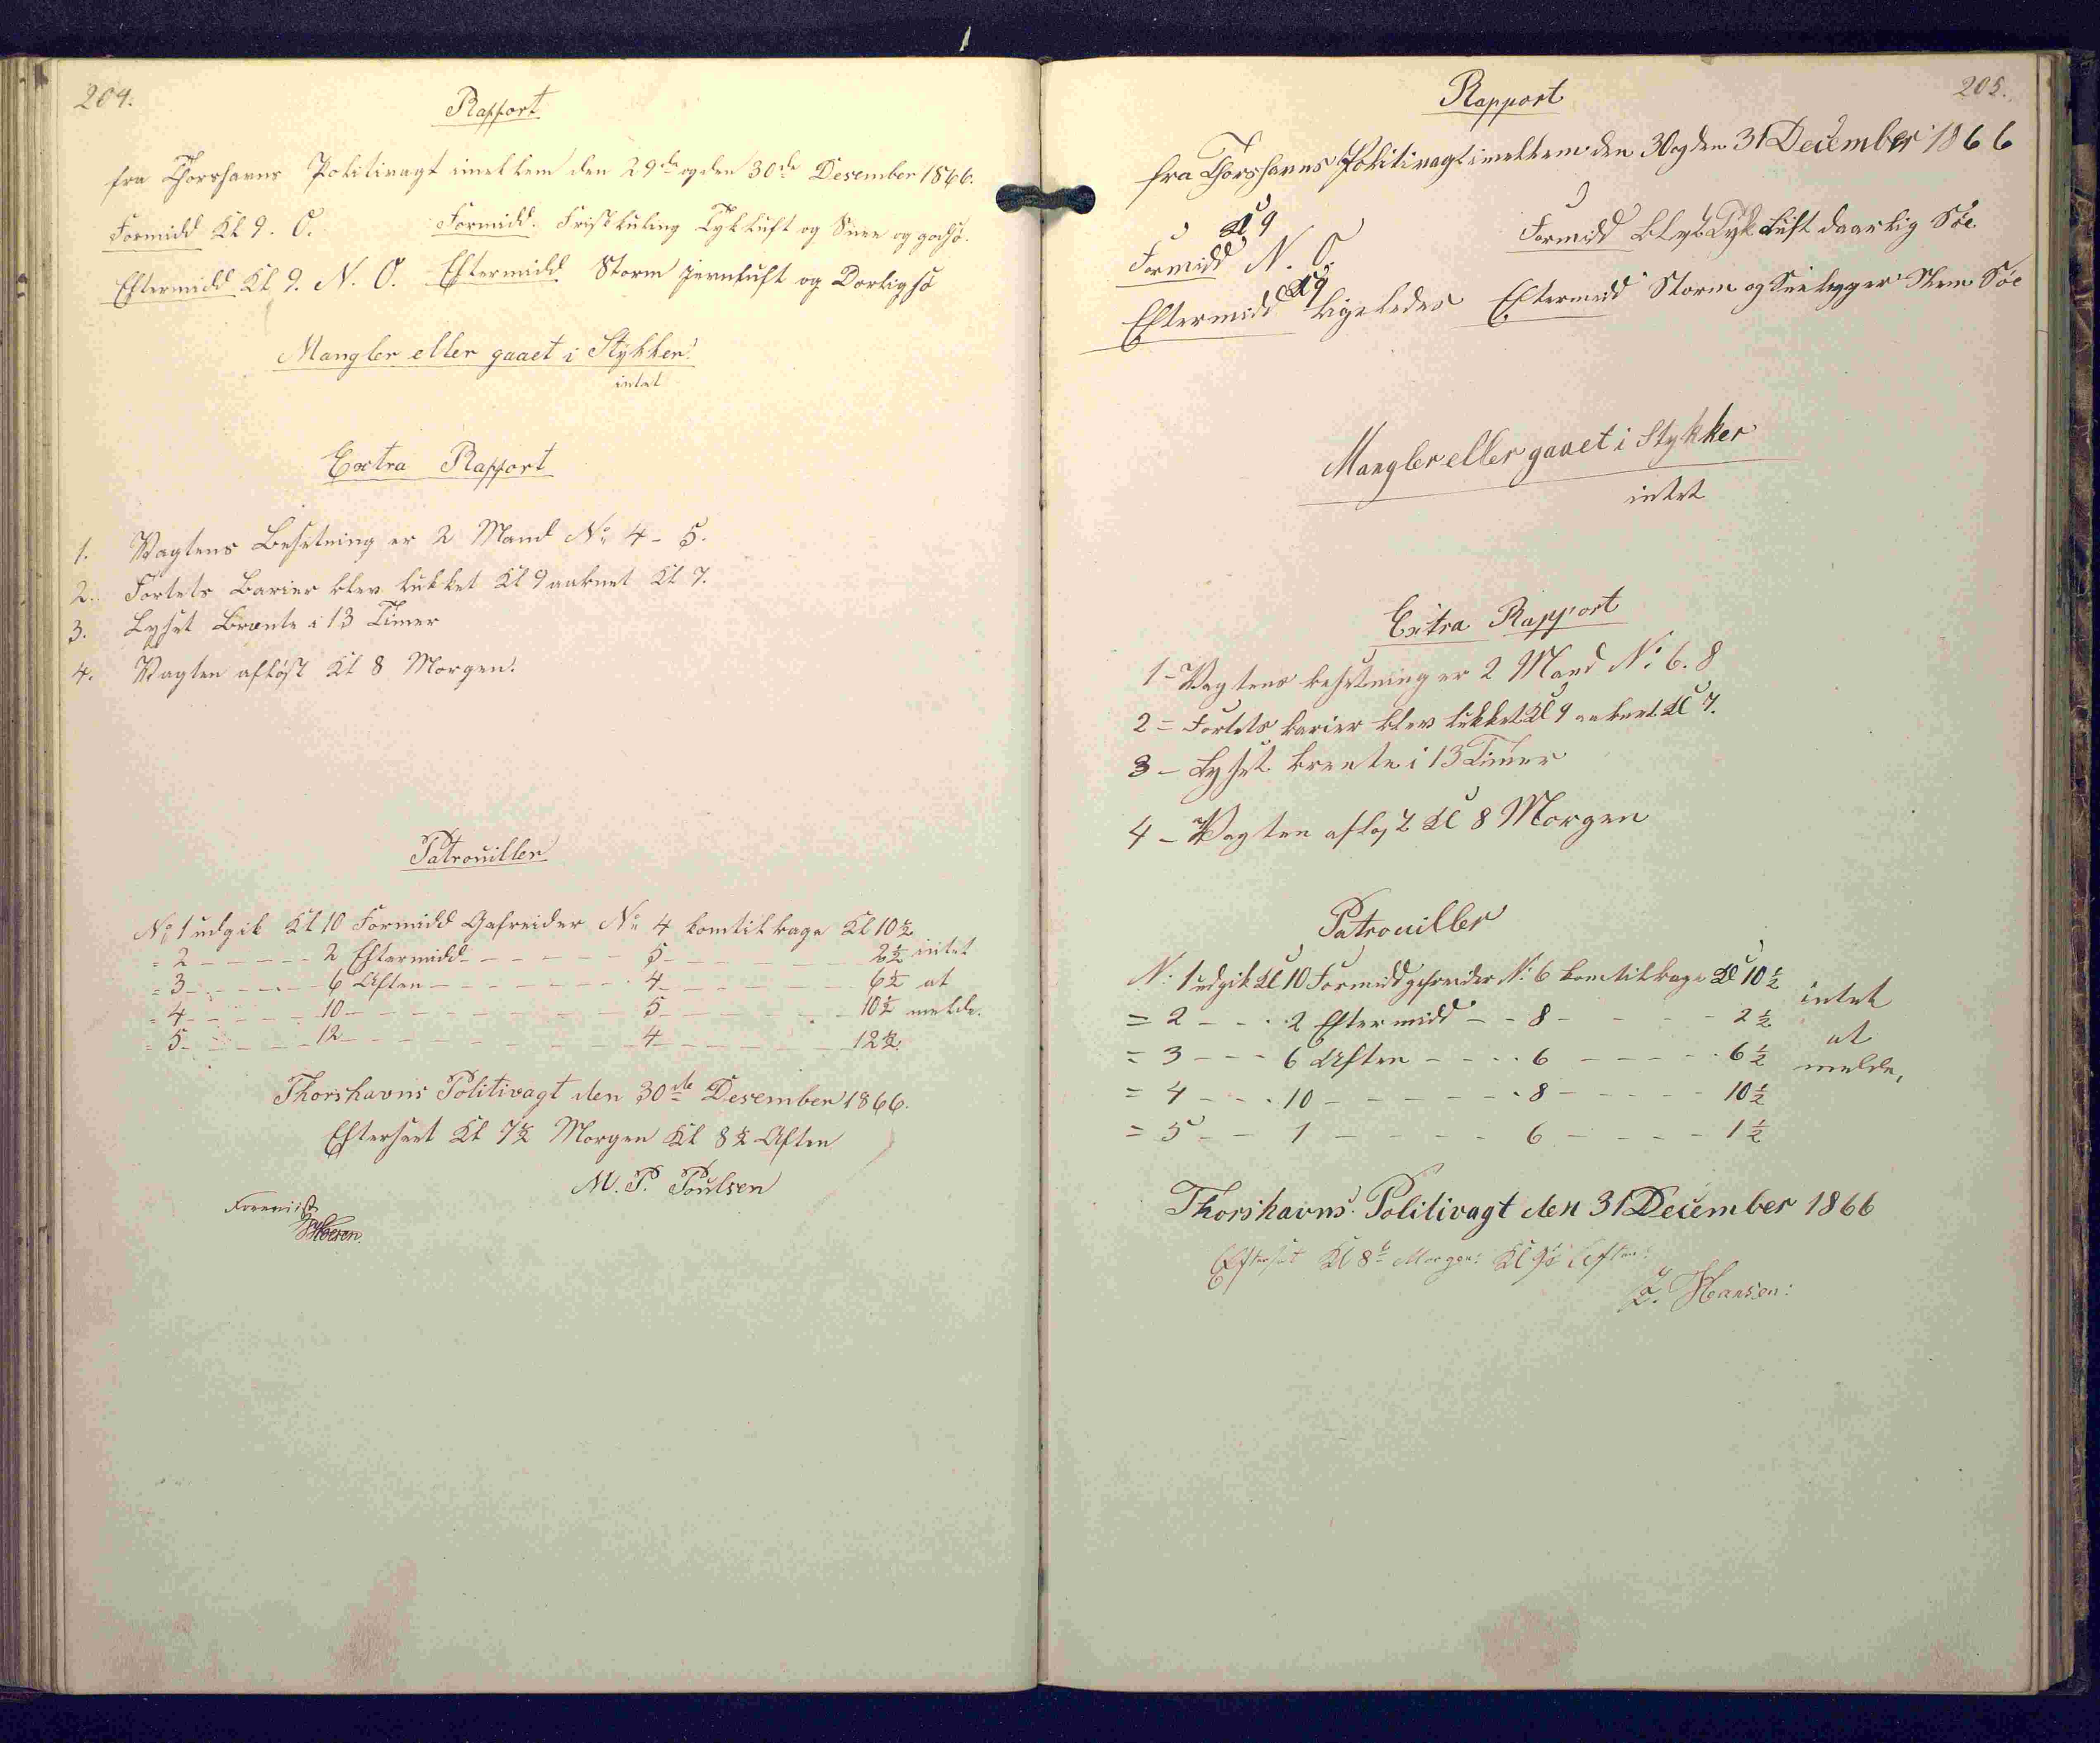 204.
Rapport
fra Thorshavns Politivagt imellem den 29de og den 30de Desember 1866.
Formidd Kl 9. O. Formidd. Frisk kuling Tyk luft og Snee og god Sø.
Eftermidd Kl 9. N. O. Eftermidd Storm Jevnluft og Dorlig sø
Mangler eller gaaet i Stykker
intet
Extra Rapport
1. Vagtens Besetning er 2 Mand No 4 - 5.
2. Fortets Barier blev lukket Kl 9 aabnet Kl 7.
3. Lyset Brænte i 13 Timer
4. Vagten afløst Kl 8 Morgen.
Patrouiller
No 1 udgik Kl 10 Formidd Gefreider No 4 kom tilbage Kl 10½
= 2 - - - - - 2 Eftermidd - - - - - 5 - - - - - 2½ intet
= 3 - - - - - 6 Aften - - - - - 4 - - - - - 6½ at
= 4 - - - - - 10 - - - - - 5 - - - - - 10½ melde.
= 5 - - - - - 12 - - - - - 4 - - - - - 12½
Thorshavns Politivagt den 30de Desember 1866.
Efterseet Kl 7½ Morgen Kl 8½ Aften
M. P. Poulsen
Forevist
205.
Rapport
fra Thorshavns Politivagt imellem den 30 og den 31 December 1866
Formidd Kl 9 N. O. Formidd Tyk Luft daarlig Søe
Eftermidd Kl 9 ligeledes Eftermidd Storm og Søe
Mangler eller gaaet i Stykker
intet
Extra Rapport
1 - Vagtens besetning er 2 Mand No 6. 8
2 = Fortets barier blev lukket Kl 9 aabnet Kl 7.
3 - Lyset brente i 13 Timer
4 - Vagten afløst Kl 8 Morgen
Patrouiller
N: 1 udgik Kl 10 Formidd gefreider N: 6 kom tilbage Kl 10½ intet
= 2 - - - 2 Eftermidd - - 8 - - - - 2½ at
= 3 - - - 6 Aften - - - - 6 - - - - 6½ melde,
= 4 - - - 10 - - - - - - 8 - - - - 10½
= 5 - - 1 - - - - - 6 - - - - 1½
Thorshavns Politivagt den 31 December 1866
Efterset Kl 8 Morgen: Kl Aften:
Hansen: